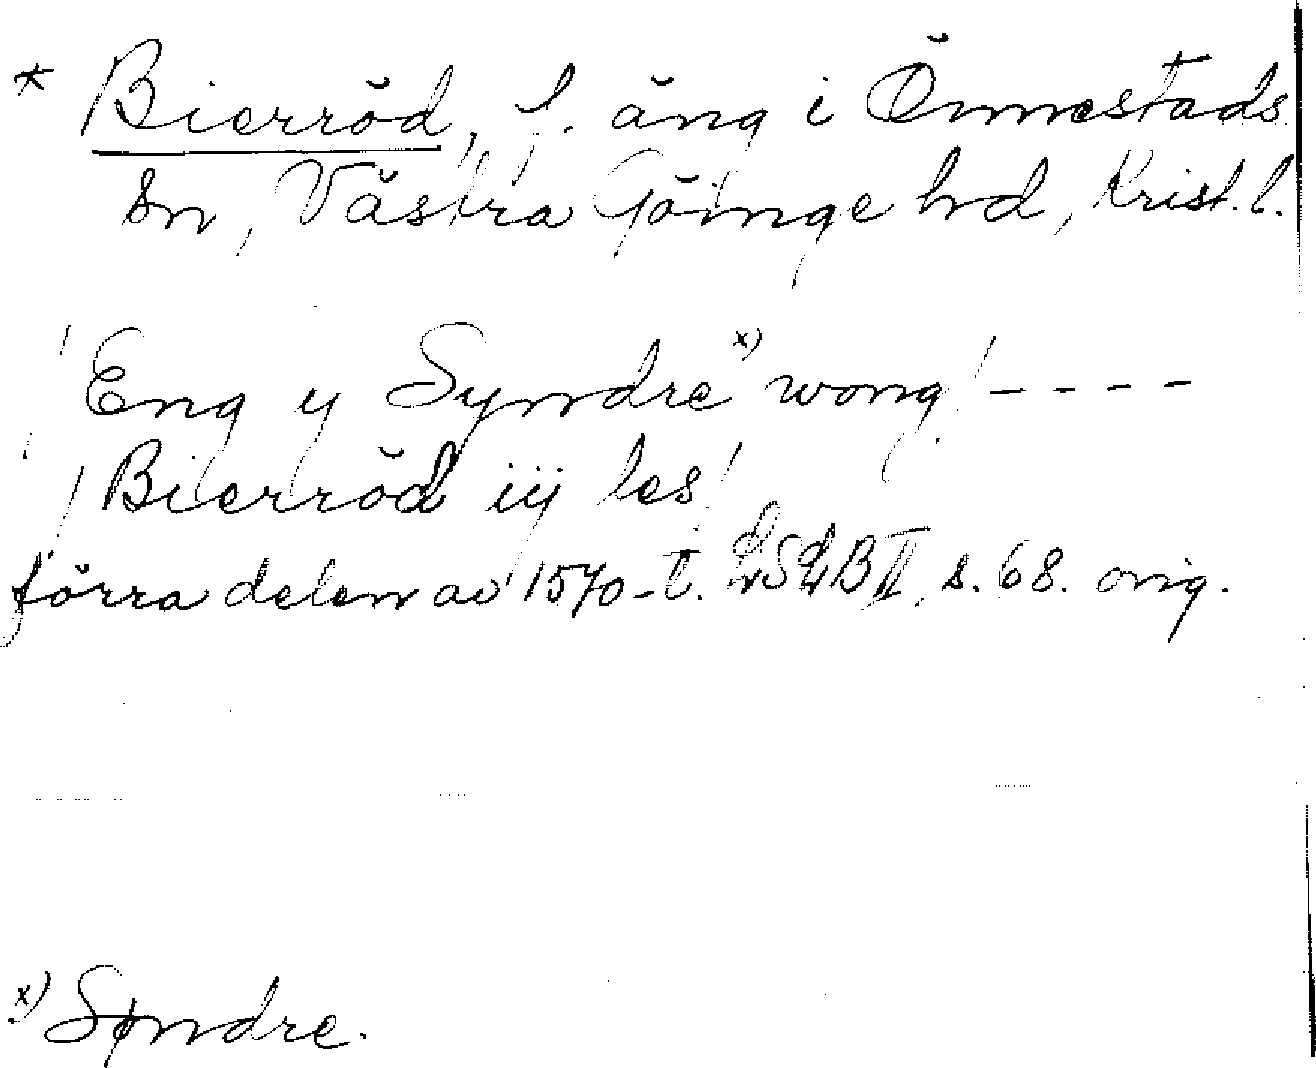 * Bierröd, f. äng i Önnestads
sn, Västra Göinge hd, Krist. l.
Eng y Syndre x) wong! - - - -
Bierröd iij les!
förra delen av 1570-t. II, s. 68. orig.
x) Søndre.